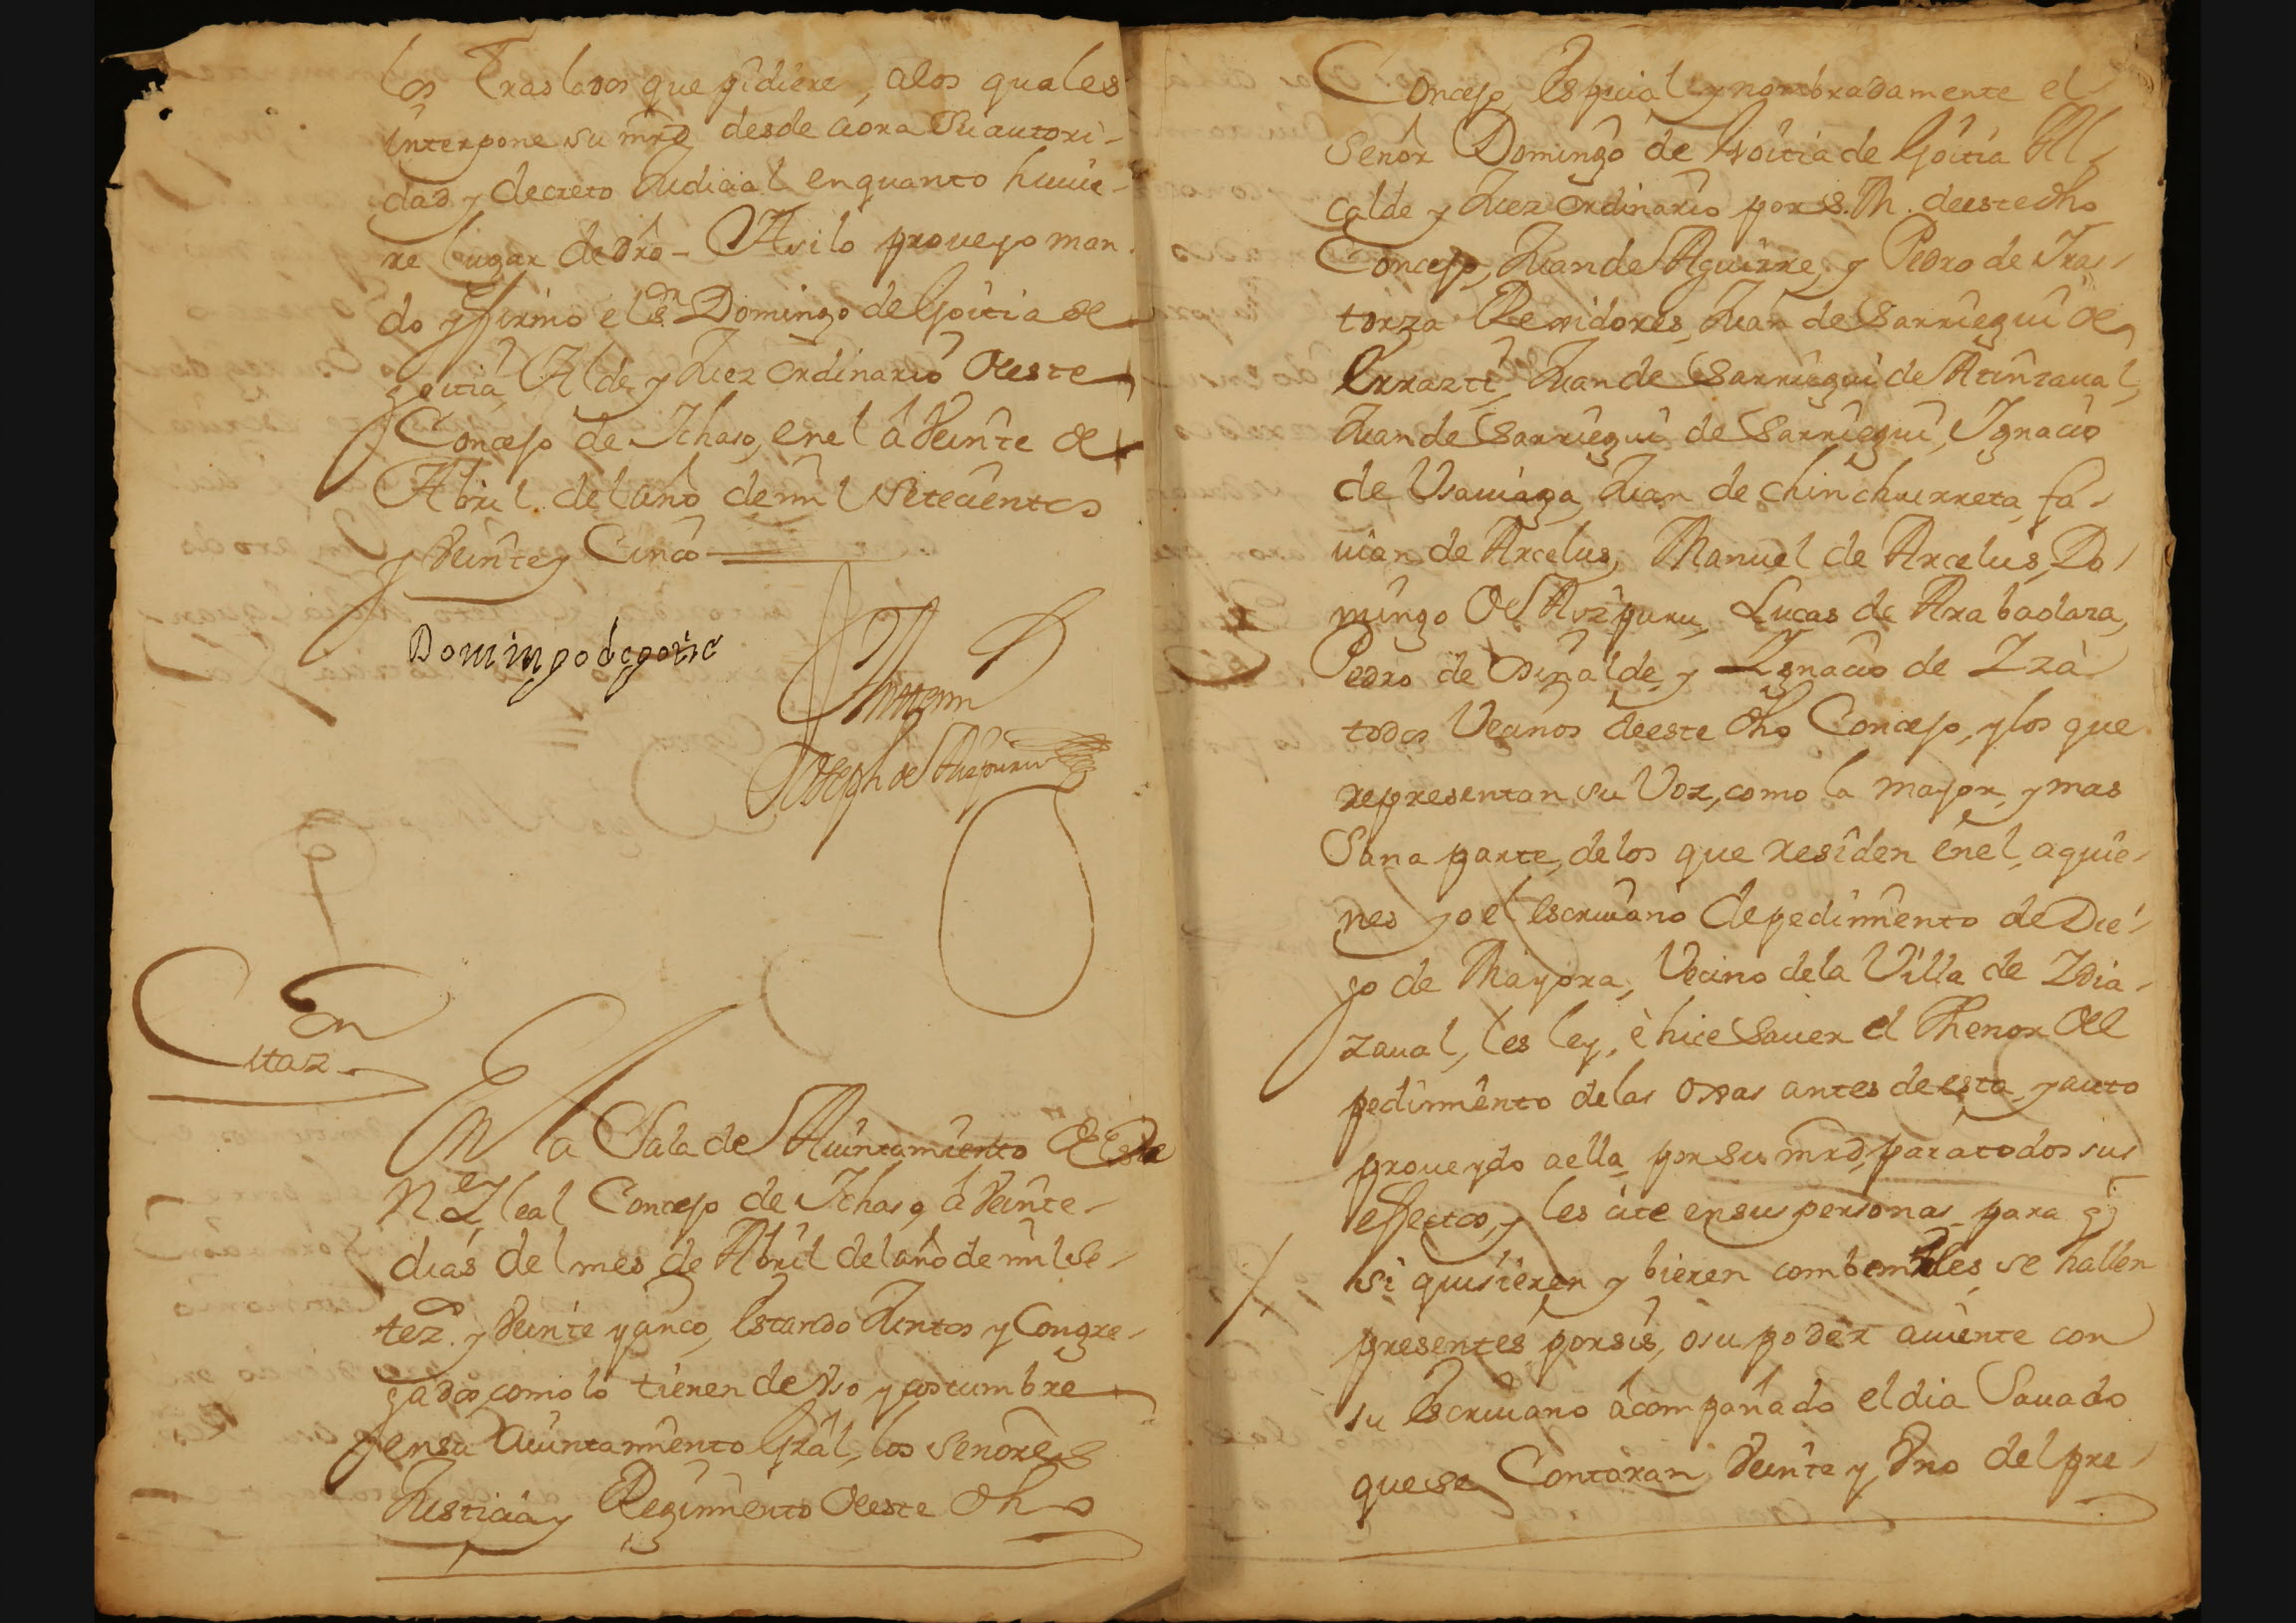 los Traslados que pidiere, alos quales
interpone su mrd desde aora su autori-
dad y decreto Judicial enquanto huuie-
re lugar de dro - Asi lo proueyo man
do y firmo el Sr Domingo de Goitia de
goitia, Alde y Juez ordinario deeste
Concejo de Ichaso, enel à Veinte de
Abril del año de mil setecientos
y Veinte y Cinco
Domingo de goitia
Ante mi
Joseph de Aizpuru
Citazon
En la Sala de Aiuntamiento de Este
N. y Leal Concejo de Ichaso, à Veinte
dias del mes de Abril del año de mil se-
tezs. y Veinte y cinco, Estando Juntos y Congre-
gados, como lo tienen de Vso y costumbre
en su Aiuntamiento Gral, los señores
Justicia y Regimiento deeste dho
Concejo, Especial y nombradamente el
Señor Domingo de Goitia de Goitia Al-
calde y Juez ordinario por S. M. deeste dho
Concejo, Juan de Aguirre, y Pedro de Iras-
torza Rexidores, Juan de Sarriegui de
Errazti, Juan de Sarriegui de Atinzaual,
Juan de Sarriegui de Sarriegui, Ignacio
de Vsauiaga, Juan de Chinchurreta, fa-
uian de Arcelus, Manuel de Arcelus, Do-
mingo de Aizpuru, Lucas de Arabaolaza,
Pedro de Oiñalde, y Ignacio de Iza
todos Vecinos deeste dho Concejo, y los que
representan su Voz, como la mayor, y mas
Sana parte, delos que residen enel, aquie-
nes yo el escriuano depedimiento de Die-
go de Mayora, Vecino dela Villa de Idia-
zaual, les ley, è hice Sauer el Thenor del
pedimiento delas oxas antes deesta, y auto
proueydo aella, por su mrd, para todos sus
effectos, y les cite en sus personas para q
si quisieren y bieren combenirles, se hallen
presentes por sis, o su poder auiente con
su Escriuano acompañado el dia Sauado
que se Contaran Veinte y Vno del pre-